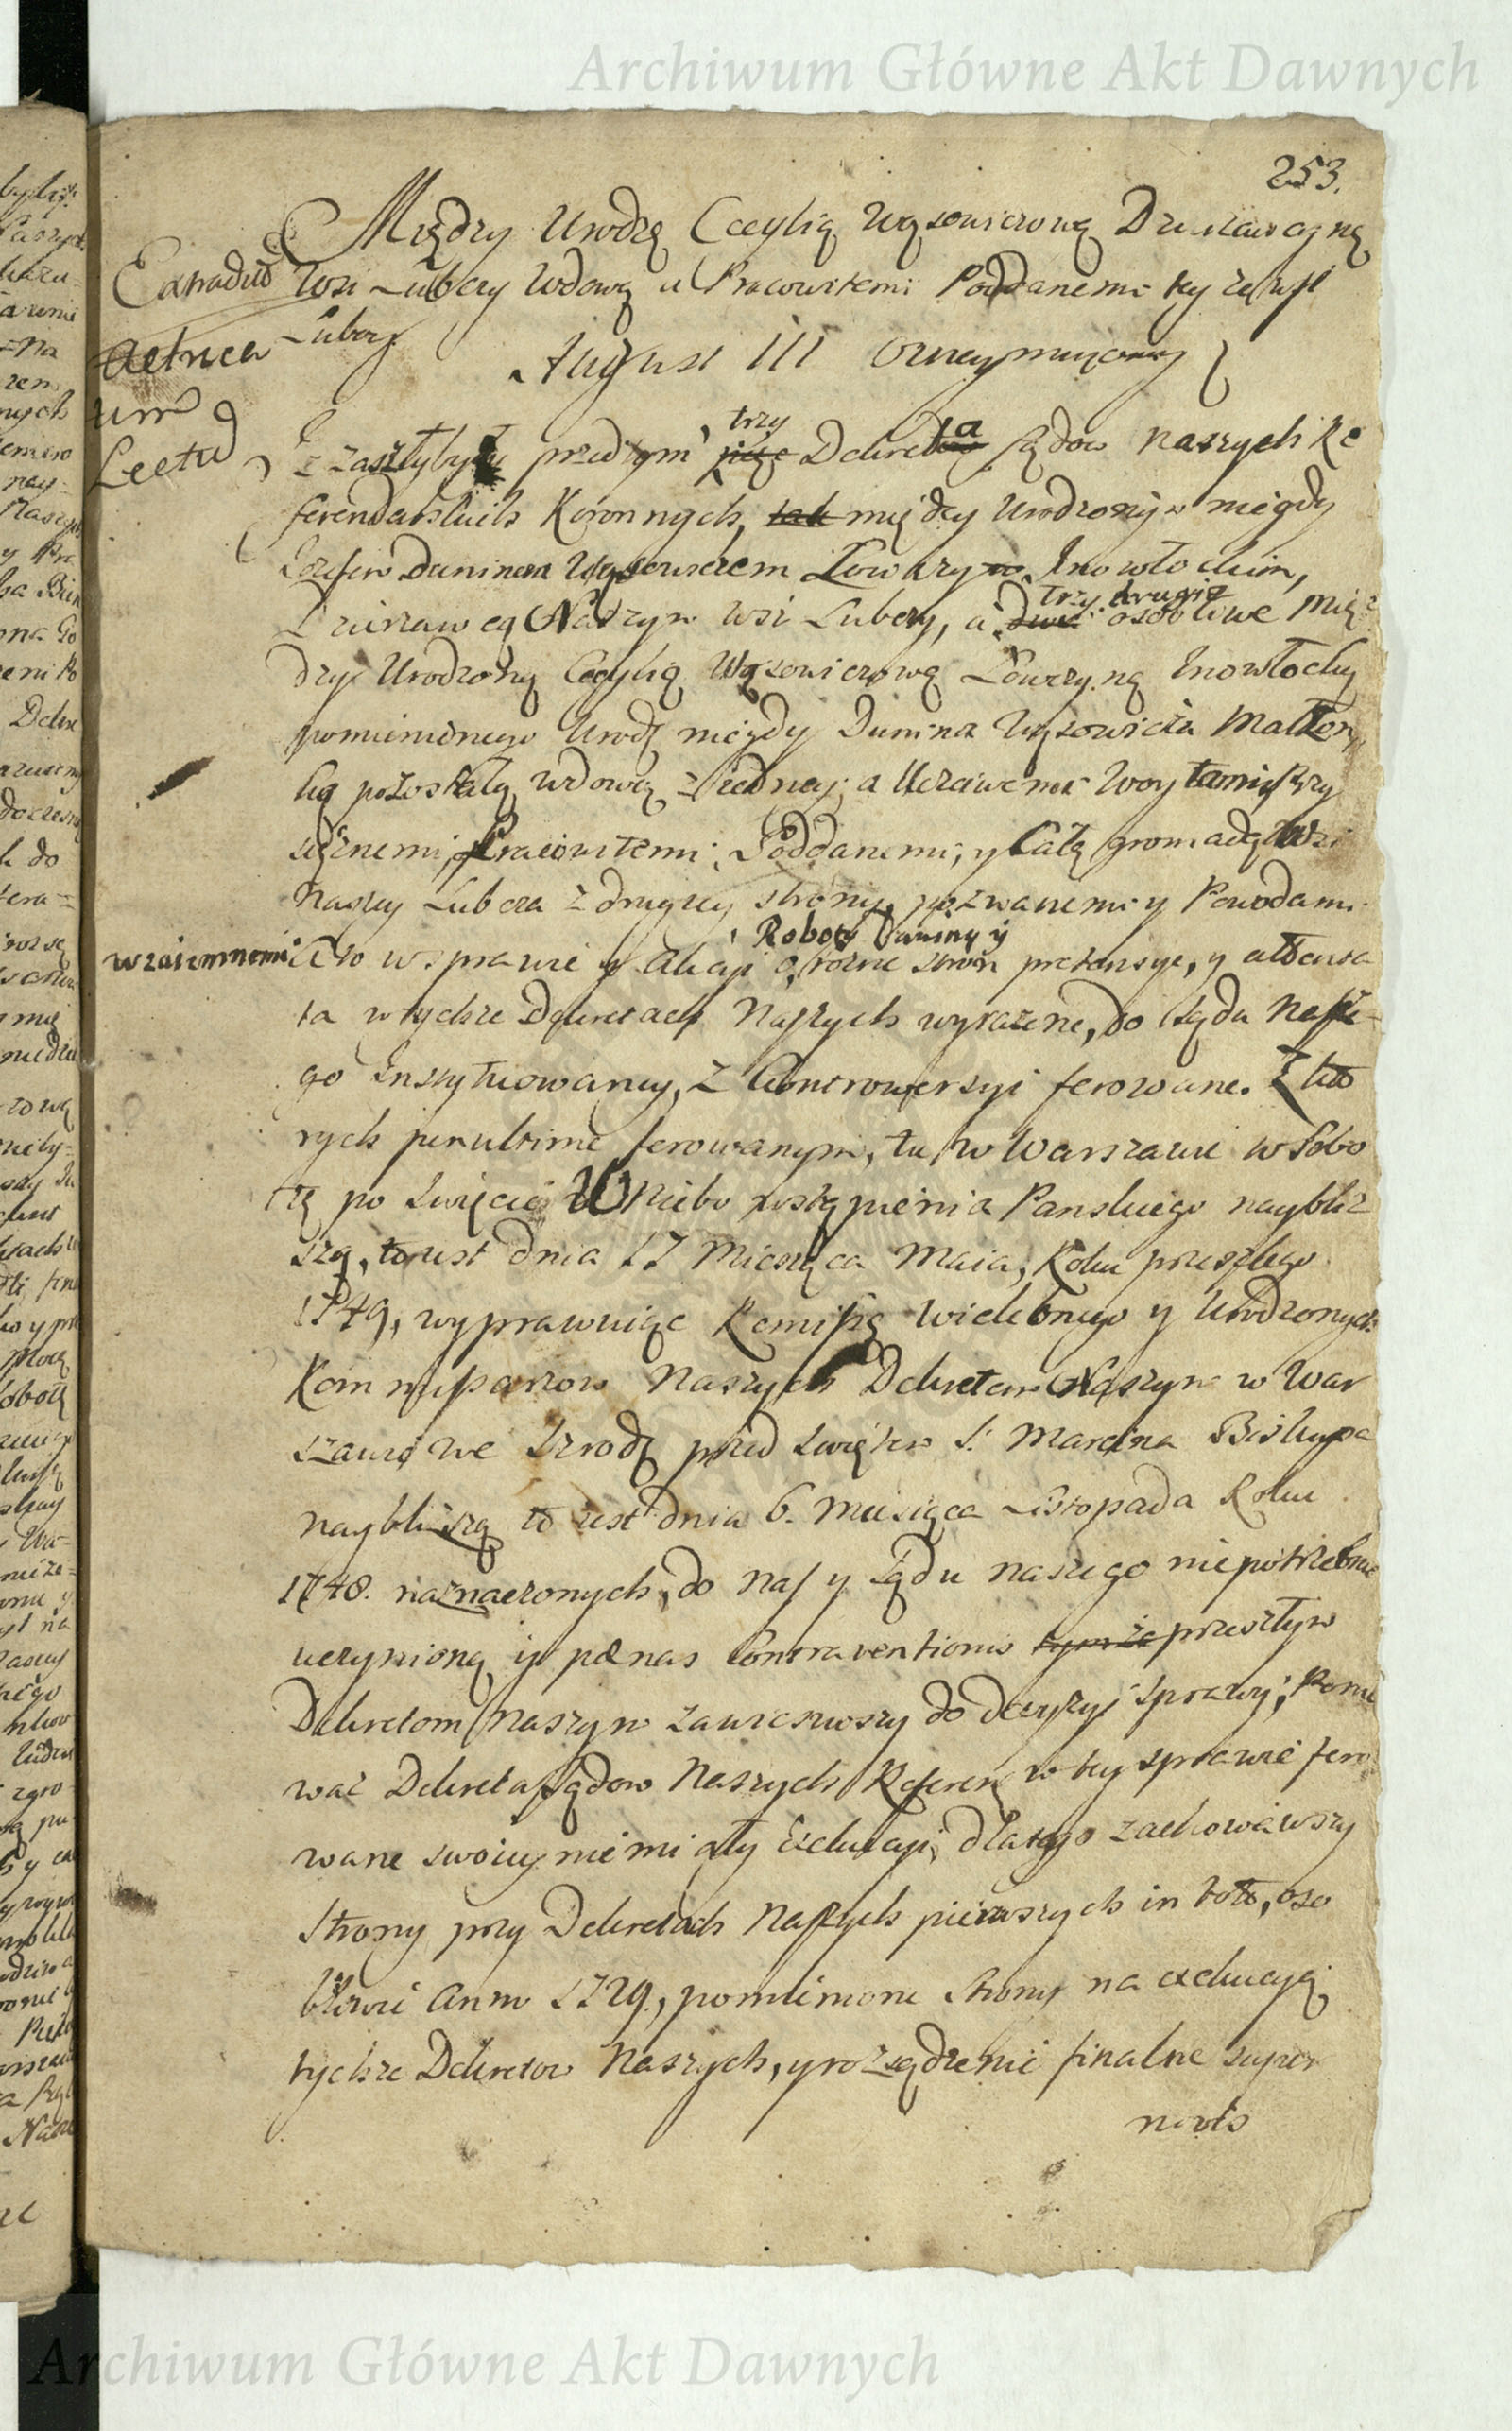 Archiwum Główne Akt Dawnych
253.
Między Urodzą Cecylią Wąsowiczową Dzierżawczyną
Extradit Wsi Lubczy Wdową a Pracowitemi Poddanemi tey że wsi
Lubczy
August III
Iż zaszłyby przedtym trzy Dekreta Sądow naszych Re
Lectũ
ferendarskich Koronnych, tak między Urodzonym niegdy
Jozefem Duninem Wąsowiczem Łowczym Inowłockim,
Dzierzawcą Naszym wsi Lubczy, a dwie trzy drugie osobliwe Mię
dzy Urodzoną Cecylią Wąsowiczową Łowczyną Inowłocką
pomienionego Urodz niegdy Dunina Wąsowicza Małżon
ką pozostałą wdową z iedney, a Uczciwemi Woytami Przy
siężnemi, Pracowitemi Poddanemi, y Całą gromadą wsi
naszey Lubcza z drugiey strony, pozwanemi y Powodami
wzaiemnemi A to w sprawie y Akcyi o Roboty Daniny y rożne stron pretensye, y
ta w tychże Dekretach Naszych wyrażone, do Sądu Nasze
go Instytuowaney, z Kontrowersyi ferowane. Z kto
rych penultime ferowanym, tu w Warszawie w Sobo
tę po Swięcie W Niebo wstąpienia Panskiego naybliż
szą, to iest dnia 17 Miesiąca Maia, Roku przeszłego
1749, wyprawuiąc Remissę Wielebnego y Urodzonych
Kommissarzow Naszych Dekretem Naszym w War
szawie we Srodę przed Swiętem S. Marcina Biskupa
naybliższą to iest dnia 6. Miesiąca Listopada Roku
1748. naznaczonych, do nas y Sądu naszego niepotrzebnie
uczynioną, y paenas Contraventionis tymże przeszłym
Dekretom Naszym zawiesiwszy do decyzyi sprawy,
wać Dekreta Sądow Naszych Referen w tey sprawie fero
wane swoiey nie miały Exekucyi, dlatego zachowawszy
Strony przy Dekretach Naszych pierwszych in toto, oso
bliwie Anno 1729, pomienione Strony na exekucyą
tychże Dekretow Naszych, y rozsądzenie finalne super
novis
Archiwum Główne Akt Dawnych